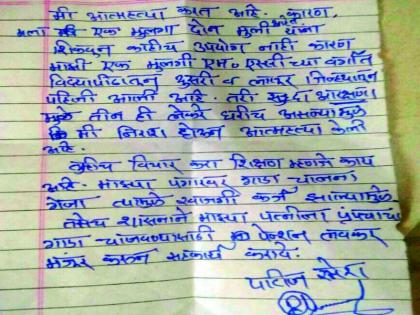 मी आत्महत्या करत आहे. कारण,
मला एक मुलगा दोन मुली आहेत यांना
शिकवून काहीच उपयोग नाही कारण
माझी एक मुलगी एम. एस्सीच्या वर्गात
विद्यापीठातून दुसरी व लातूर जिल्ह्यातून
पहिली आली आहे. तरी सुद्धा आरक्षणा
मुळे तीन ही लेकरे घरीच असल्यामुळे
मी निराश होऊन आत्महत्या केली
आहे.
तुम्हीच विचार करा शिक्षण म्हणजे काय
आहे. माझ्या पगारावर गाडा चालना
गेला त्यामुळे खाजगी कर्ज झाल्यामुळे
तसेच शासनाने माझ्या पत्नीला प्रपंचाचा
गाडा चालवण्यासाठी पेन्शन लवकर
मंजूर करून सहकार्य करावे.
पाटील रमेश